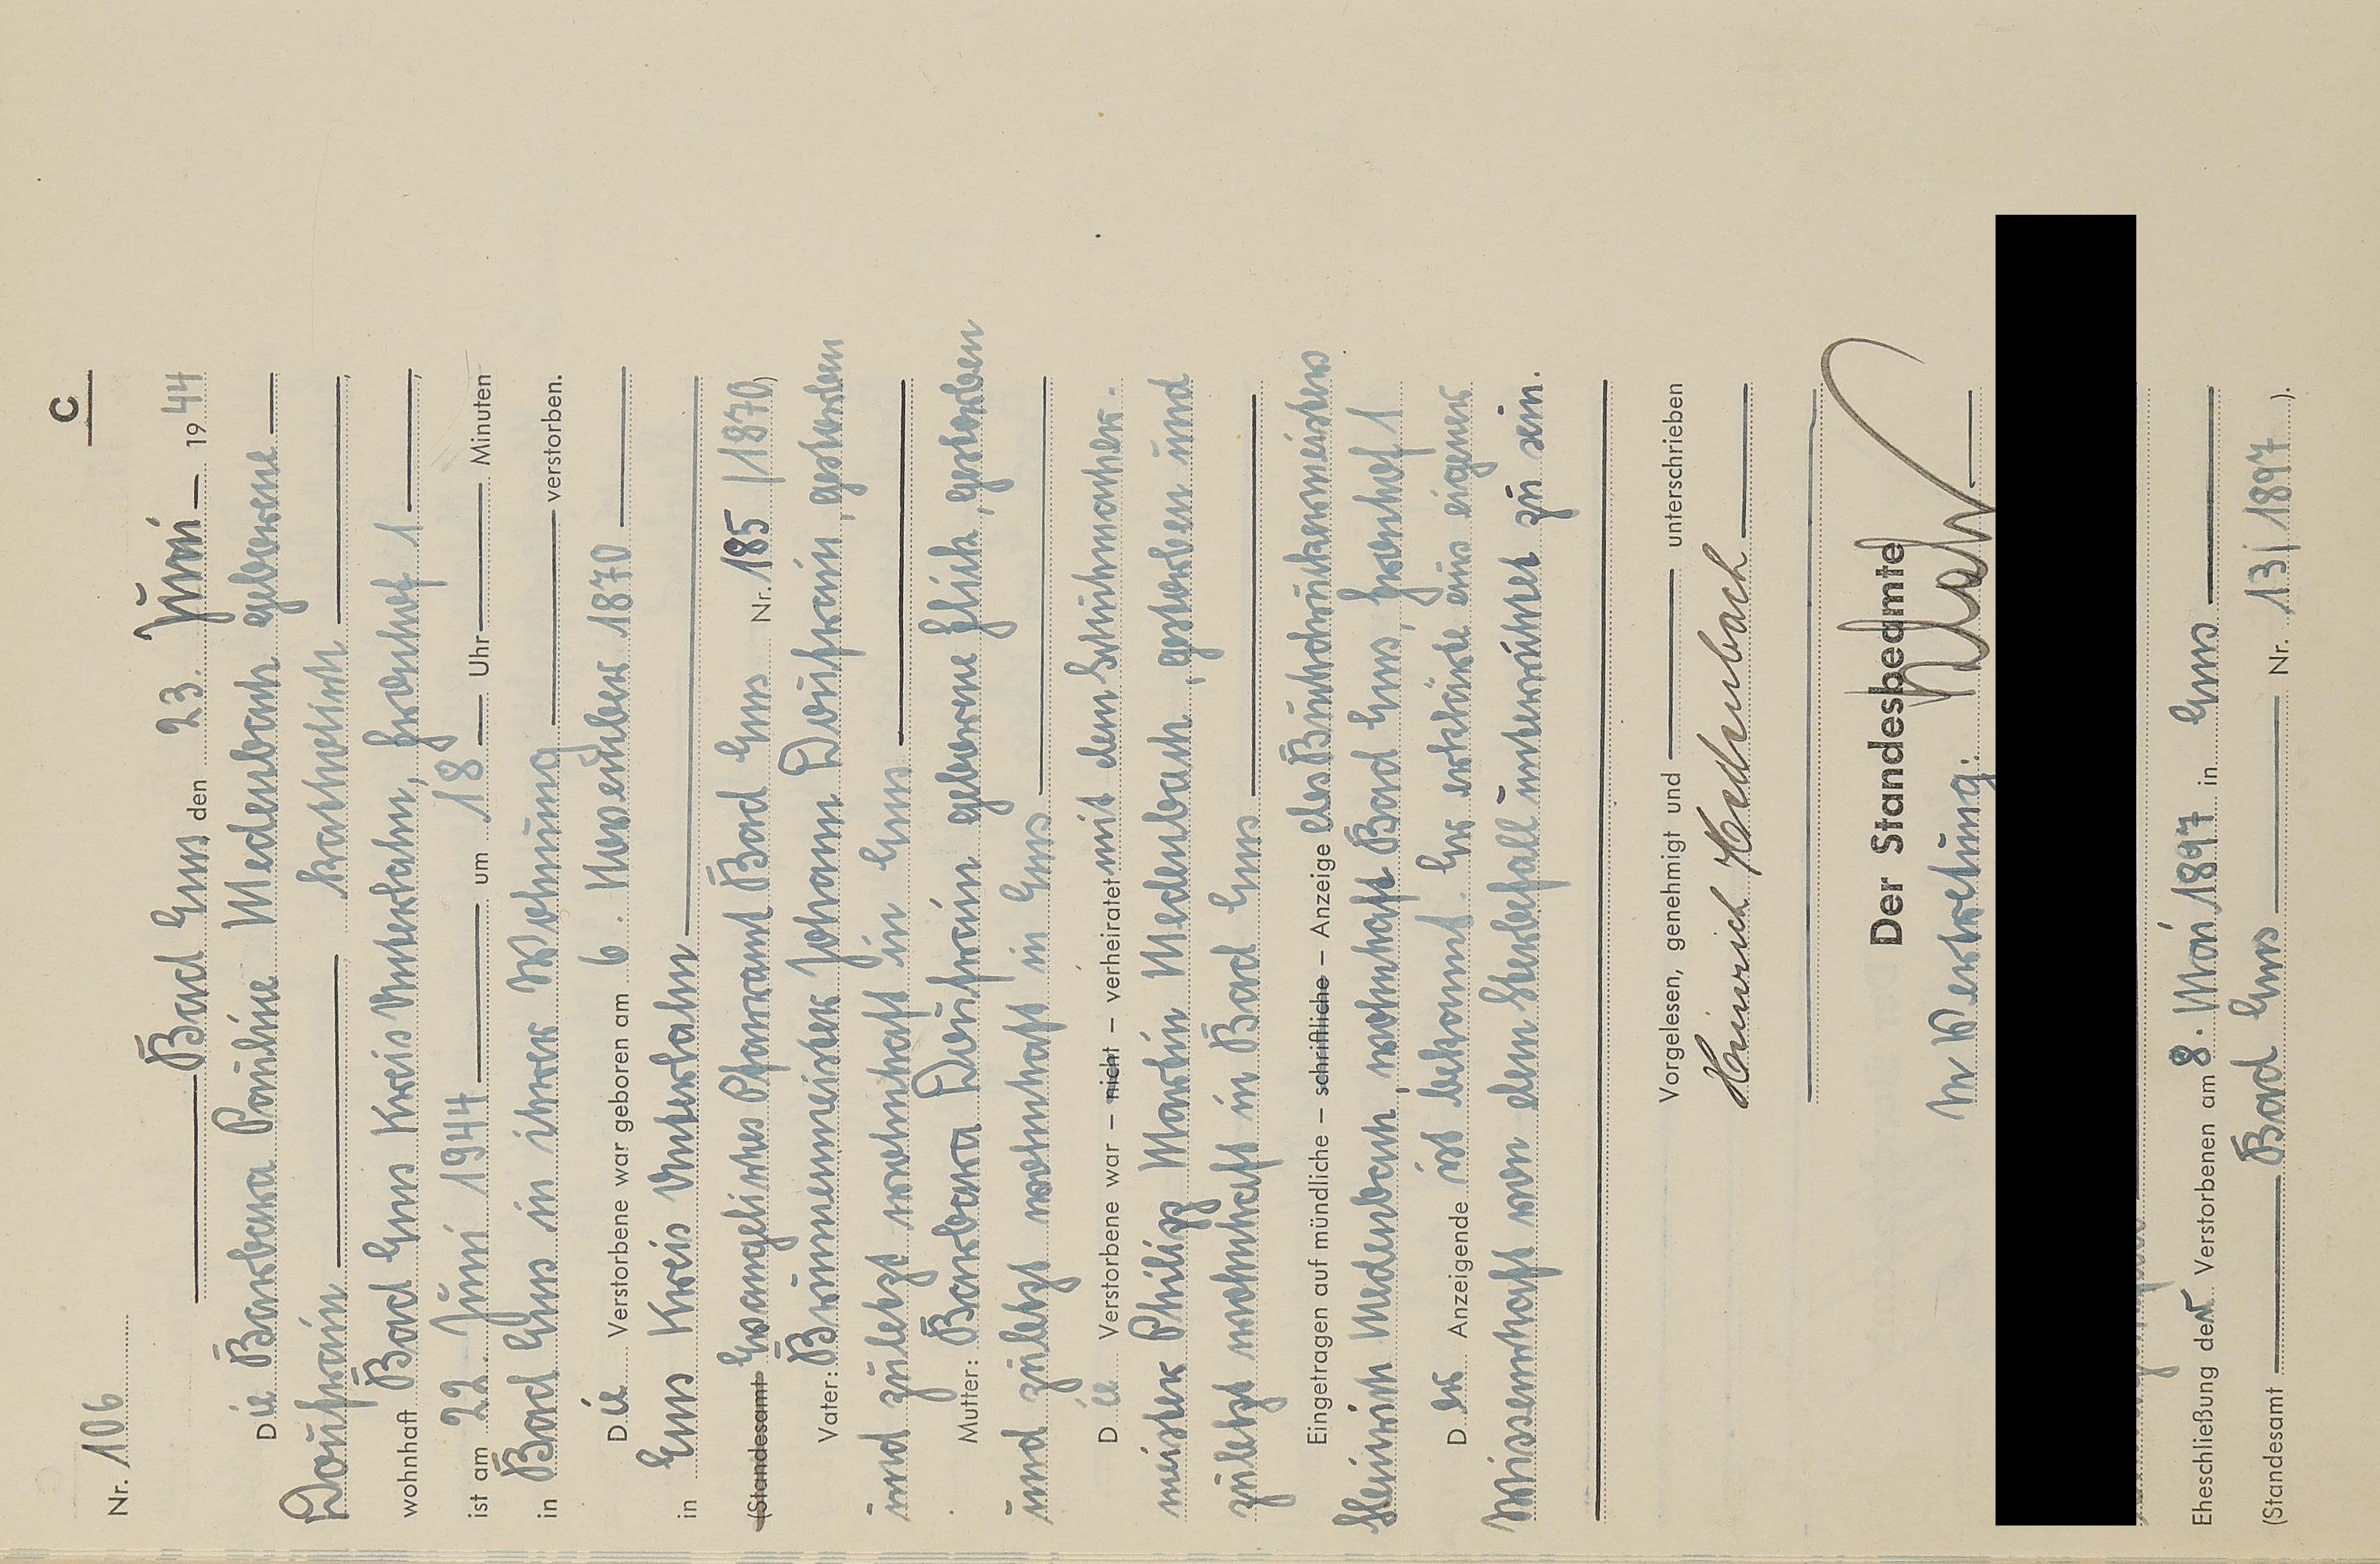 C
Nr. 106
Bad Ems den 23. Juni 1944
Die Barbara Pauline Medenbach geborene
Daufrain katholisch,
wohnhaft Bad Ems Kreis Unterlahn, Fronhof 1,
ist am 22. Juni 1944 um 18 Uhr Minuten
in Bad Ems in ihrer Wohnung verstorben.
Die Verstorbene war geboren am 6. November 1870
in Ems Kreis Unterlahn
(Standesamt Evangelisches Pfarramt Bad Ems Nr. 185 / 1870)
Vater: Brunnenmeister Johann Daufrain, gestorben
und zuletzt wohnhaft in Ems
Mutter: Barbara Daufrain geborene Flich, gestorben
und zuletzt wohnhaft in Ems
Die Verstorbene war – nicht – verheiratet mit dem Schuhmacher-
meister Philipp Martin Medenbach, gestorben und
zuletzt wohnhaft in Bad Ems
Eingetragen auf mündliche – schriftliche – Anzeige des Buchdruckermeisters
Heinrich Medenbach, wohnhaft Bad Ems, Fronhof 1
Der Anzeigende ist bekannt. Er erklärte aus eigener
Wissenschaft von dem Sterbefall unterrichtet zu sein.
Vorgelesen, genehmigt und unterschrieben
Heinrich Medenbach
Der Standesbeamte
In Vertretung:
Eheschließung der Verstorbenen am 8. Mai 1897 in Ems
(Standesamt Bad Ems Nr. 13 / 1897 ).